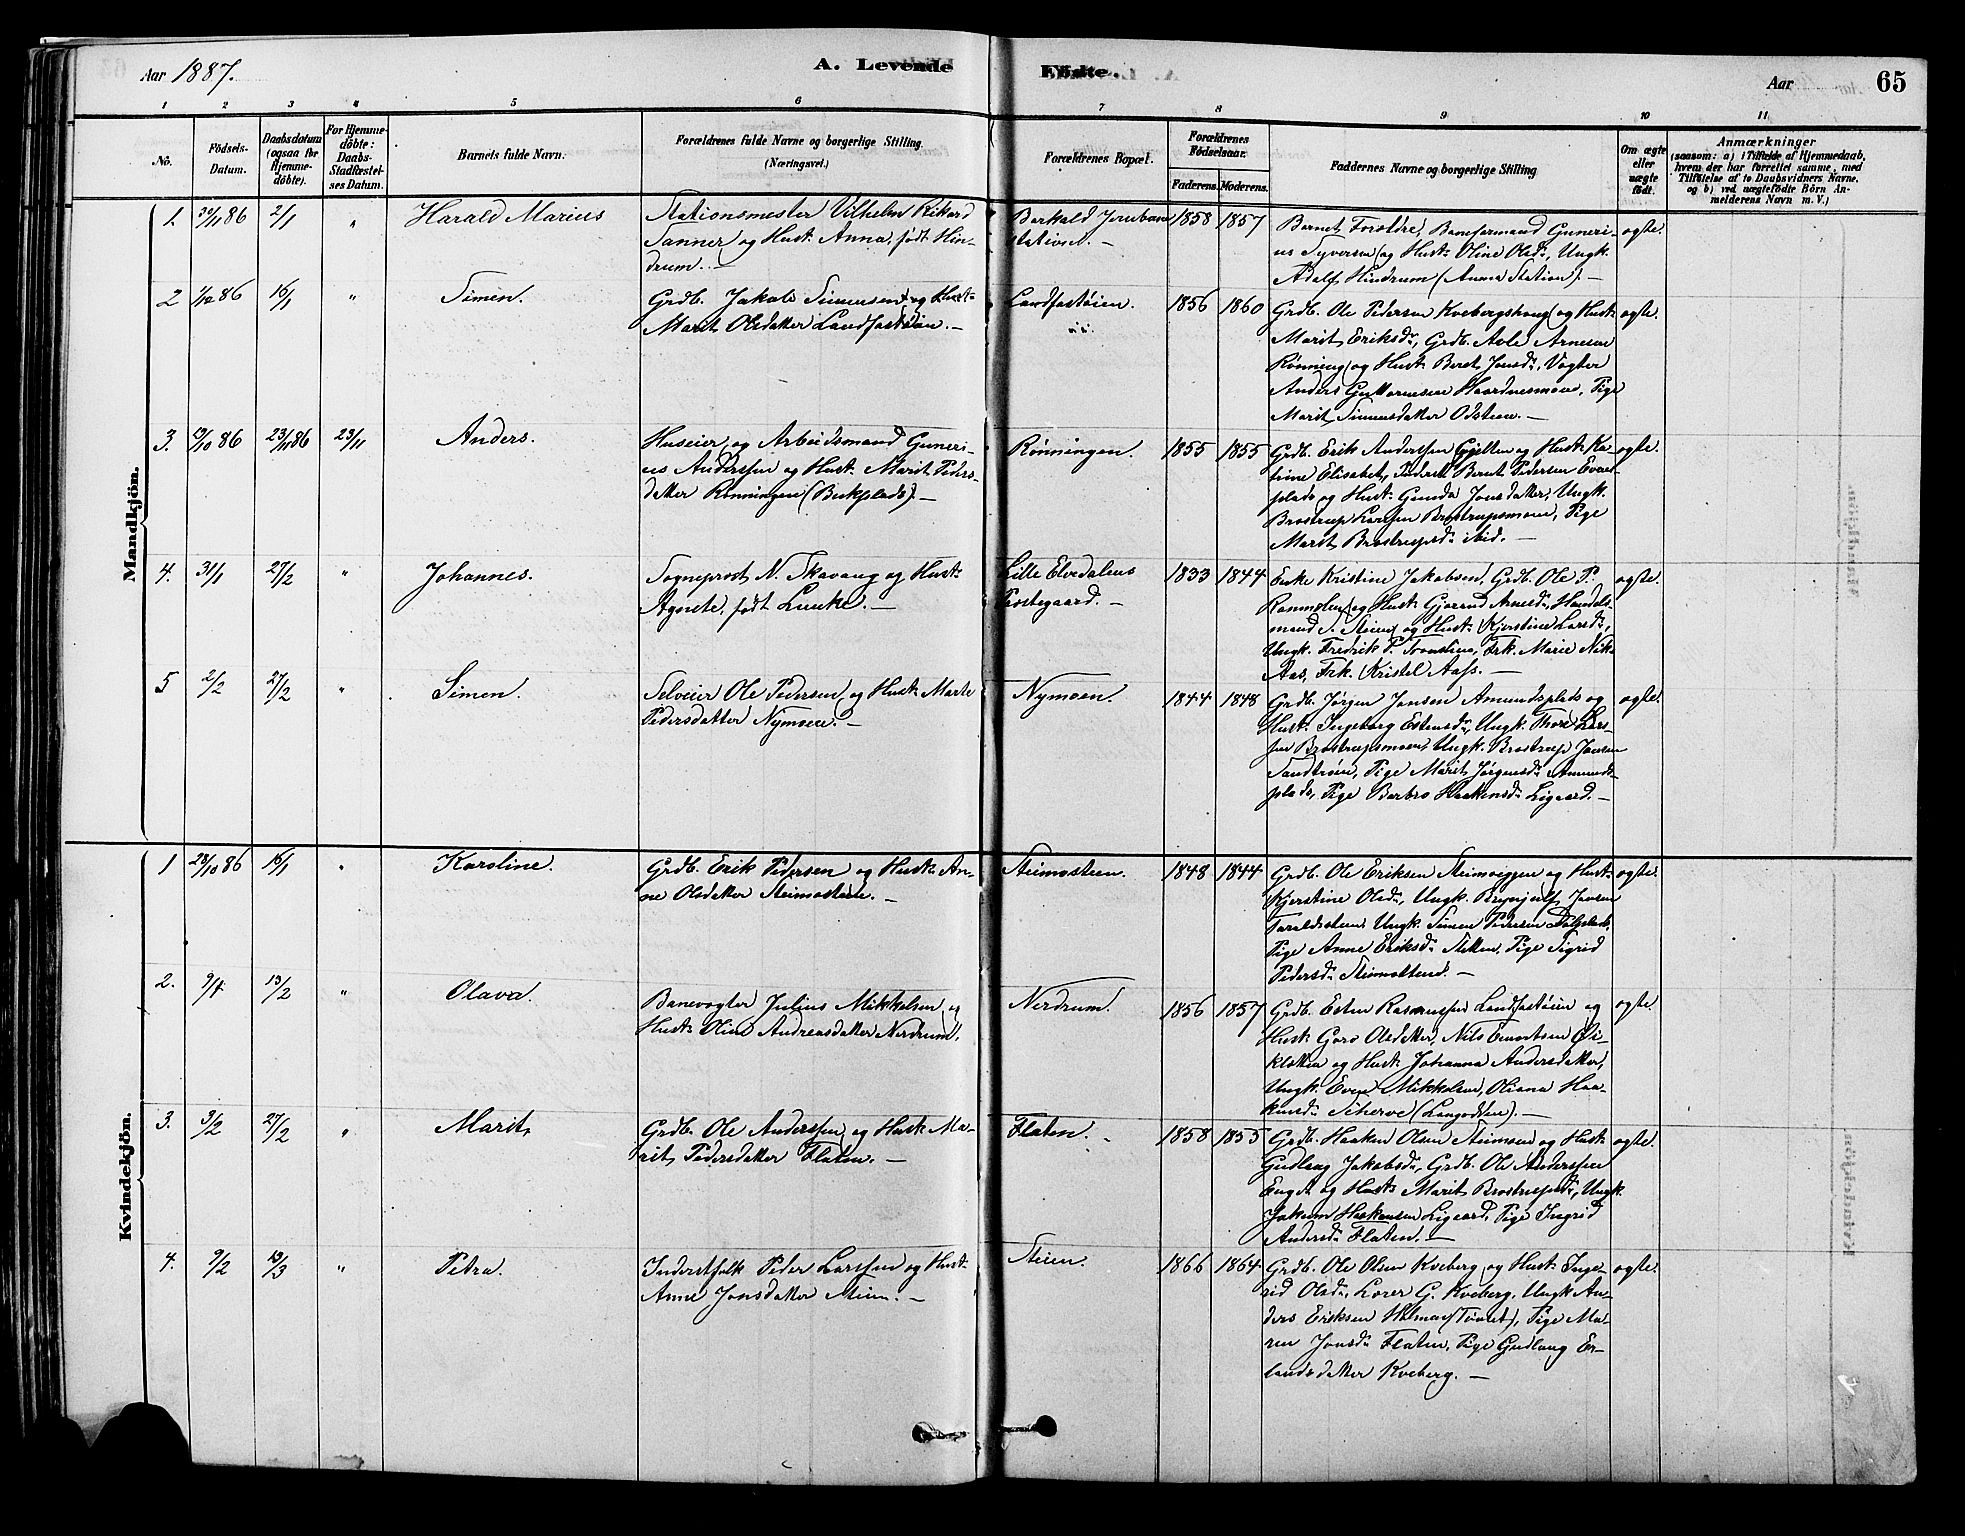 Aar 1887.
A. Levende
Fødte.
Aar
65
1
2
3
4
5
6
7
8
9
10
11
No.
Födsels-
Datum.
Daabsdatum
(ogsaa for
Hjemme-
döbte).
For Hjemme-
döbte:
Daabs-
Stadfæstel-
ses Datum.
Barnets fulde Navn.
Forældrenes fulde Navne og borgerlige Stilling
(Næringsvei.)
Forældrenes Bopæl.
Forældrenes
Födselsaar.
Faderens.
Moderens.
Faddernes Navne og borgerlige Stilling
Om ægte
eller
uægte
födt.
Anmærkninger
(saasom: a) i Tilfælde af Hjemmedaab,
hvem der har forrettet samme, med
Tilföielse af to Daabsvidners Navne,
og b) ved uægtefödte Börn An-
melderens Navn m. V.)
Mandkjön.
1. 30/11 86 2/1 " Harald Marius
Stationsmester Vilhelm Rikard
Tanner og Hust: Anna, født Hin-
drum. —
Barkald Jernbane
station. —
1858 1857
Barnets Foreldre, Baneformand Guneri-
us Syversen og Hust: Oline Olsd:, Ungk.
Adolf Hindrum (Anna Station). —
ægte.
2 1/12 86 16/1 " Simen.
Grdb. Jakob Simensen og Hust:
Marit Olsdatter Landfastøien. —
Landfastøien.
1856 1860
Grdb. Ole Pedersen Kvebergshaug og Hust:
Marit Eriksd:, Grdb. Avle Arnesen
Rønning og Hust: Beret Jonsd:, Vogter
Anders Guttormsen Haardnesmoen, Pige
Marit Simensdatter Odsteen. —
ægte.
3. 19/10 86 23/11 86 23/11 Anders.
Huseier og Arbeidsmand Guneri-
us Anderssen og Hust: Marit Peders-
datter Rønningen (Bækplads). —
Rønningen.
1855 1855
Grdb. Erik Anderssen Gjelten og Hust: Ka-
trine Elisabet, Inderst Bernt Pedersen Evens-
plads og Hust: Gunda Jonsdatter, Ungk.
Brostrup Larssen Brostrupsmoen, Pige
Marit Brostrupsd: ibid. —
ægte.
4. 31/1 27/2 " Johannes.
Sogneprest N. Skavang og Hust:
Agnete, født Lunke. —
Lille Elvedalens
Prestegaard. —
1833 1844
Enke Kristine Jakobsen, Grdb. Ole P.
Rammelen og Hust: Gjørund Arnesd:, Handels-
mand S. Steien og Hust: Kjerstine Larsd:,
Ungk. Fredrik P. Tronslien, Frk. Marie Nik:
Aas, Frk. Kristel Aass. —
ægte.
5 2/2 27/2 " Simen.
Selveier Ole Pedersen og Hust: Marte
Pedersdatter Nymoen. —
Nymoen.
1844 1848
Grdb. Jørgen Jonsen Amundsplads og
Hust: Ingeborg Estensd:, Ungk. Thore Lars-
sen Brostrupsmoen, Ungk. Brostrup Jonsen
Sandtrøen, Pige Marit Jørgensd: Amunds-
plads, Pige Barbro Haakensd: Ligaard. —
ægte.
Kvindekjön.
1 28/10 86 16/1 " Karoline.
Grdb. Erik Pedersen og Hust: An-
ne Olsdatter Steimosteen. —
Steimosteen.
1848 1844
Grdb. Ole Eriksen Steimoeggen og Hust:
Kjerstine Olsd:, Ungk. Brynjulf Jonsen
Taraldsteen, Ungk. Simen Pedersen
Pige Anne Eriksd: Stetten, Pige Sigrid
Pedersd: —
ægte.
2. 9/1 13/2 " Olava.
Banevogter Julius Mikkelsen og
Hust: Oline Andreasdatter Nerdrum.
Nerdrum.
1856 1857
Grdb. Esten Rasmussen Landfastøien og
Hust: Goro Olsdatter, Nils Emortsen Ei-
kletten og Hust: Johanna Andersdatter,
Ungk. Even Mikkelsen, Oliana Haa-
kensd: (Langodden). —
ægte.
3. 3/2 27/2 " Marit.
Grdb. Ole Anderssen og Hust: Ma-
rit Pedersdatter Flaten. —
Flaten. —
1858 1855
Grdb. Haaken Olsen Steimoen og Hust:
Gudlaug Jakobsd:, Grdb. Ole Anderssen
Enget og Hust: Marit Brostrupsd:, Ungk.
Jakum Haakensen Ligaard, Pige Ingrid
Andersd: Flaten. —
ægte.
4. 9/2 13/3 " Petra.
Inderstfolk Peder Larssen og Hust:
Anne Jonsdatter Steien. —
Steien.
1866 1864
Grdb. Ole Olsen Kveberg og Hust: Inge-
rid Olsd:, Lærer G. Kveberg, Ungk. An-
ders Eriksen Holmen (Tønset), Pige Ma-
ren Jonsd: Flaten, Pige Gudlaug Er-
landsdatter Kveberg. —
ægte.